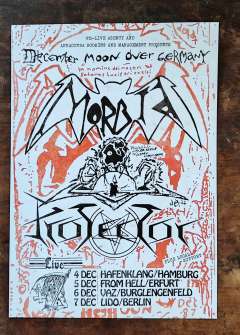 RE-LIVE AGENCY AND
AVALUSTRA BOOKING AND MANAGEMENT PRESENTS
December Moon over Germany
In nomine dei nostri
MORBID
PROTECTOR
Live
4 DEC HAFENKLANG/HAMBURG
5 DEC FROM HELL/ERFURT
6 DEC VAZ/BURGLENGENFELD
7 DEC LIDO/BERLIN